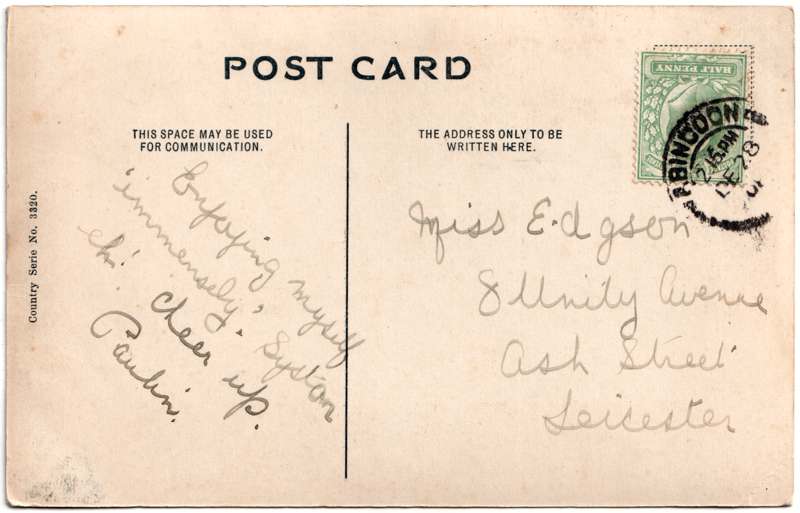 POST CARD
THIS SPACE MAY BE USED
FOR COMMUNICATION.
THE ADDRESS ONLY TO BE
WRITTEN HERE.
HALF PENNY
ABINGDON
2.15 PM
DE 28
Country Serie No. 3320.
Enjoying myself
'immensely', Syston
eh! cheer up.
Paulin.
Miss E. dgson
8 Unity Avenue
Ash Street
Leicester